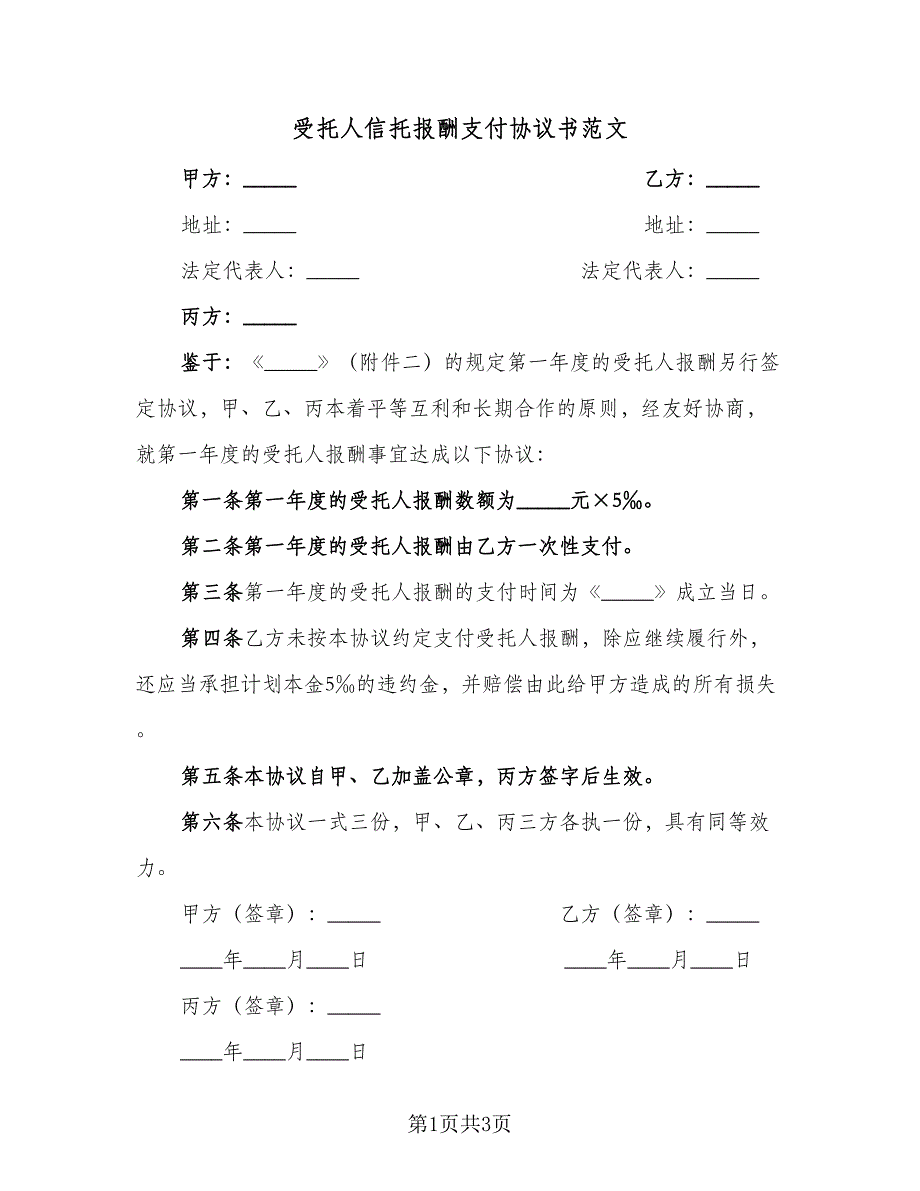 受托人信托报酬支付协议书范文
甲方：_____ 乙方：_____
地址：_____ 地址：_____
法定代表人：_____ 法定代表人：_____
丙方：_____
鉴于：《_____》（附件二）的规定第一年度的受托人报酬另行签
定协议，甲、乙、丙本着平等互利和长期合作的原则，经友好协商，
就第一年度的受托人报酬事宜达成以下协议：
第一条第一年度的受托人报酬数额为_____元×5‰。
第二条第一年度的受托人报酬由乙方一次性支付。
第三条第一年度的受托人报酬的支付时间为《_____》成立当日。
第四条乙方未按本协议约定支付受托人报酬，除应继续履行外，
还应当承担计划本金5‰的违约金，并赔偿由此给甲方造成的所有损失
。
第五条本协议自甲、乙加盖公章，丙方签字后生效。
第六条本协议一式三份，甲、乙、丙三方各执一份，具有同等效
力。
甲方（签章）：_____ 乙方（签章）：_____
____年____月____日 ____年____月____日
丙方（签章）：_____
____年____月____日
第1页共3页